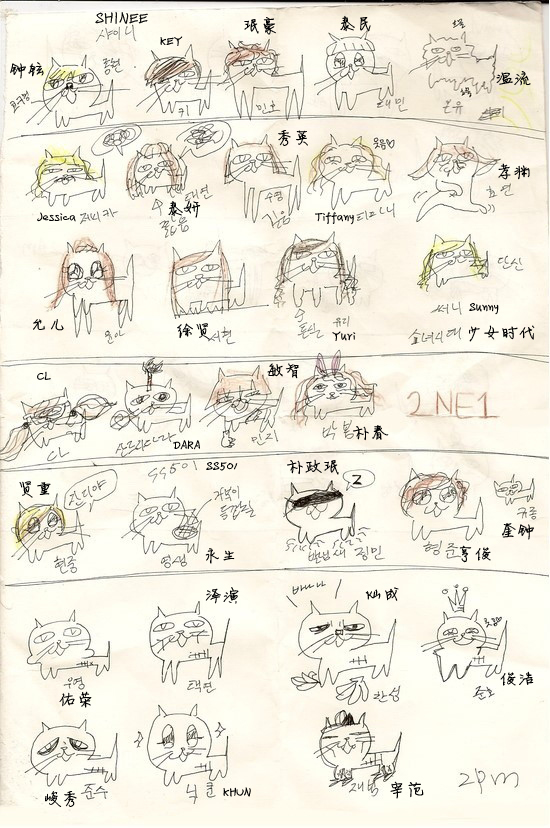 SHINEE
샤이니
钟铉
종현
KEY
키
珉豪
민호
泰民
태민
温流
온유
Jessica 제시카
泰妍
태연
秀英
수영
Tiffany 티파니
孝渊
효연
允儿
윤아
徐贤 서현
유리
Yuri
단신
써니 Sunny
소녀시대 少女时代
CL
CL
산다라다라
DARA
敏智
민지
박봄 朴春
2NE1
SS501 SS501
贤重
현중
영생 永生
朴政珉
Z
정민
형준 亨俊
규종
奎钟
우영
佑荣
泽演
택연
바나나
찬성
준호
俊浩
峻秀 준수
닉쿤 KHUN
재범 宰范
2pm